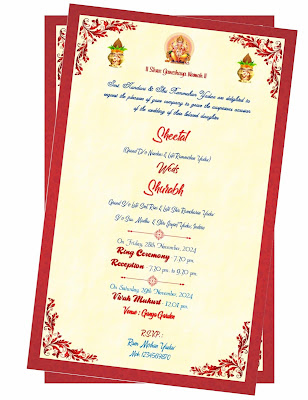 || Shree Ganeshaya Namah ||
Smt. Kundan & Shri Ramavtar Yadav are delighted to
request the pleasure of your company to grace the auspicious occasion
of the wedding of their beloved daughter
Sheetal
(Grand D/o Nandan & Late Ramavtar Yadav)
Weds
Shurabh
Grand S/o Late Smt Rani & Late Shri Ramcharan Yadav
S/o Smt. Madhu & Shri Gopal Yadav
On Friday, 28th November, 2024
Ring Ceremony : 7:20 pm
Reception : 7:20 pm to 9:20 pm
On Saturday, 29th November, 2024
Vivah Muhurt : 12.04 pm
Venue : Ganga Garden
R.S.V.P. :
Ram Mohan Yadav
Mob: 1234569870